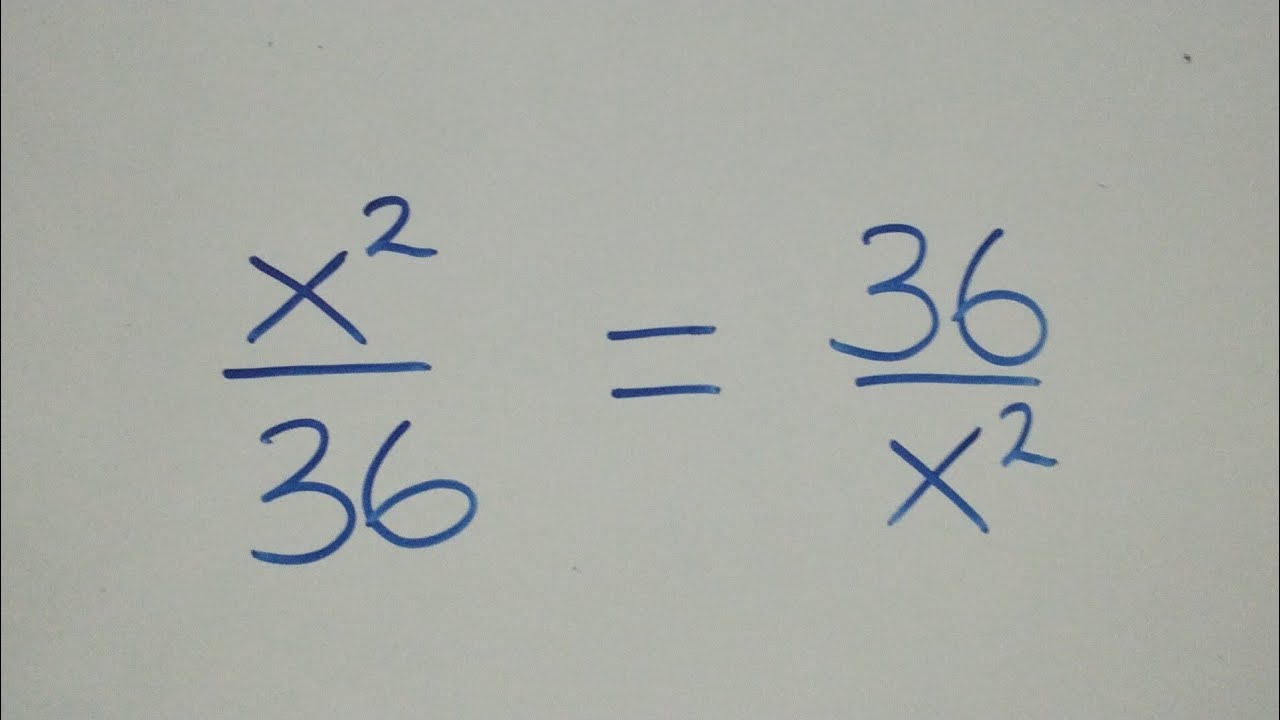 x² / 36 = 36 / x²